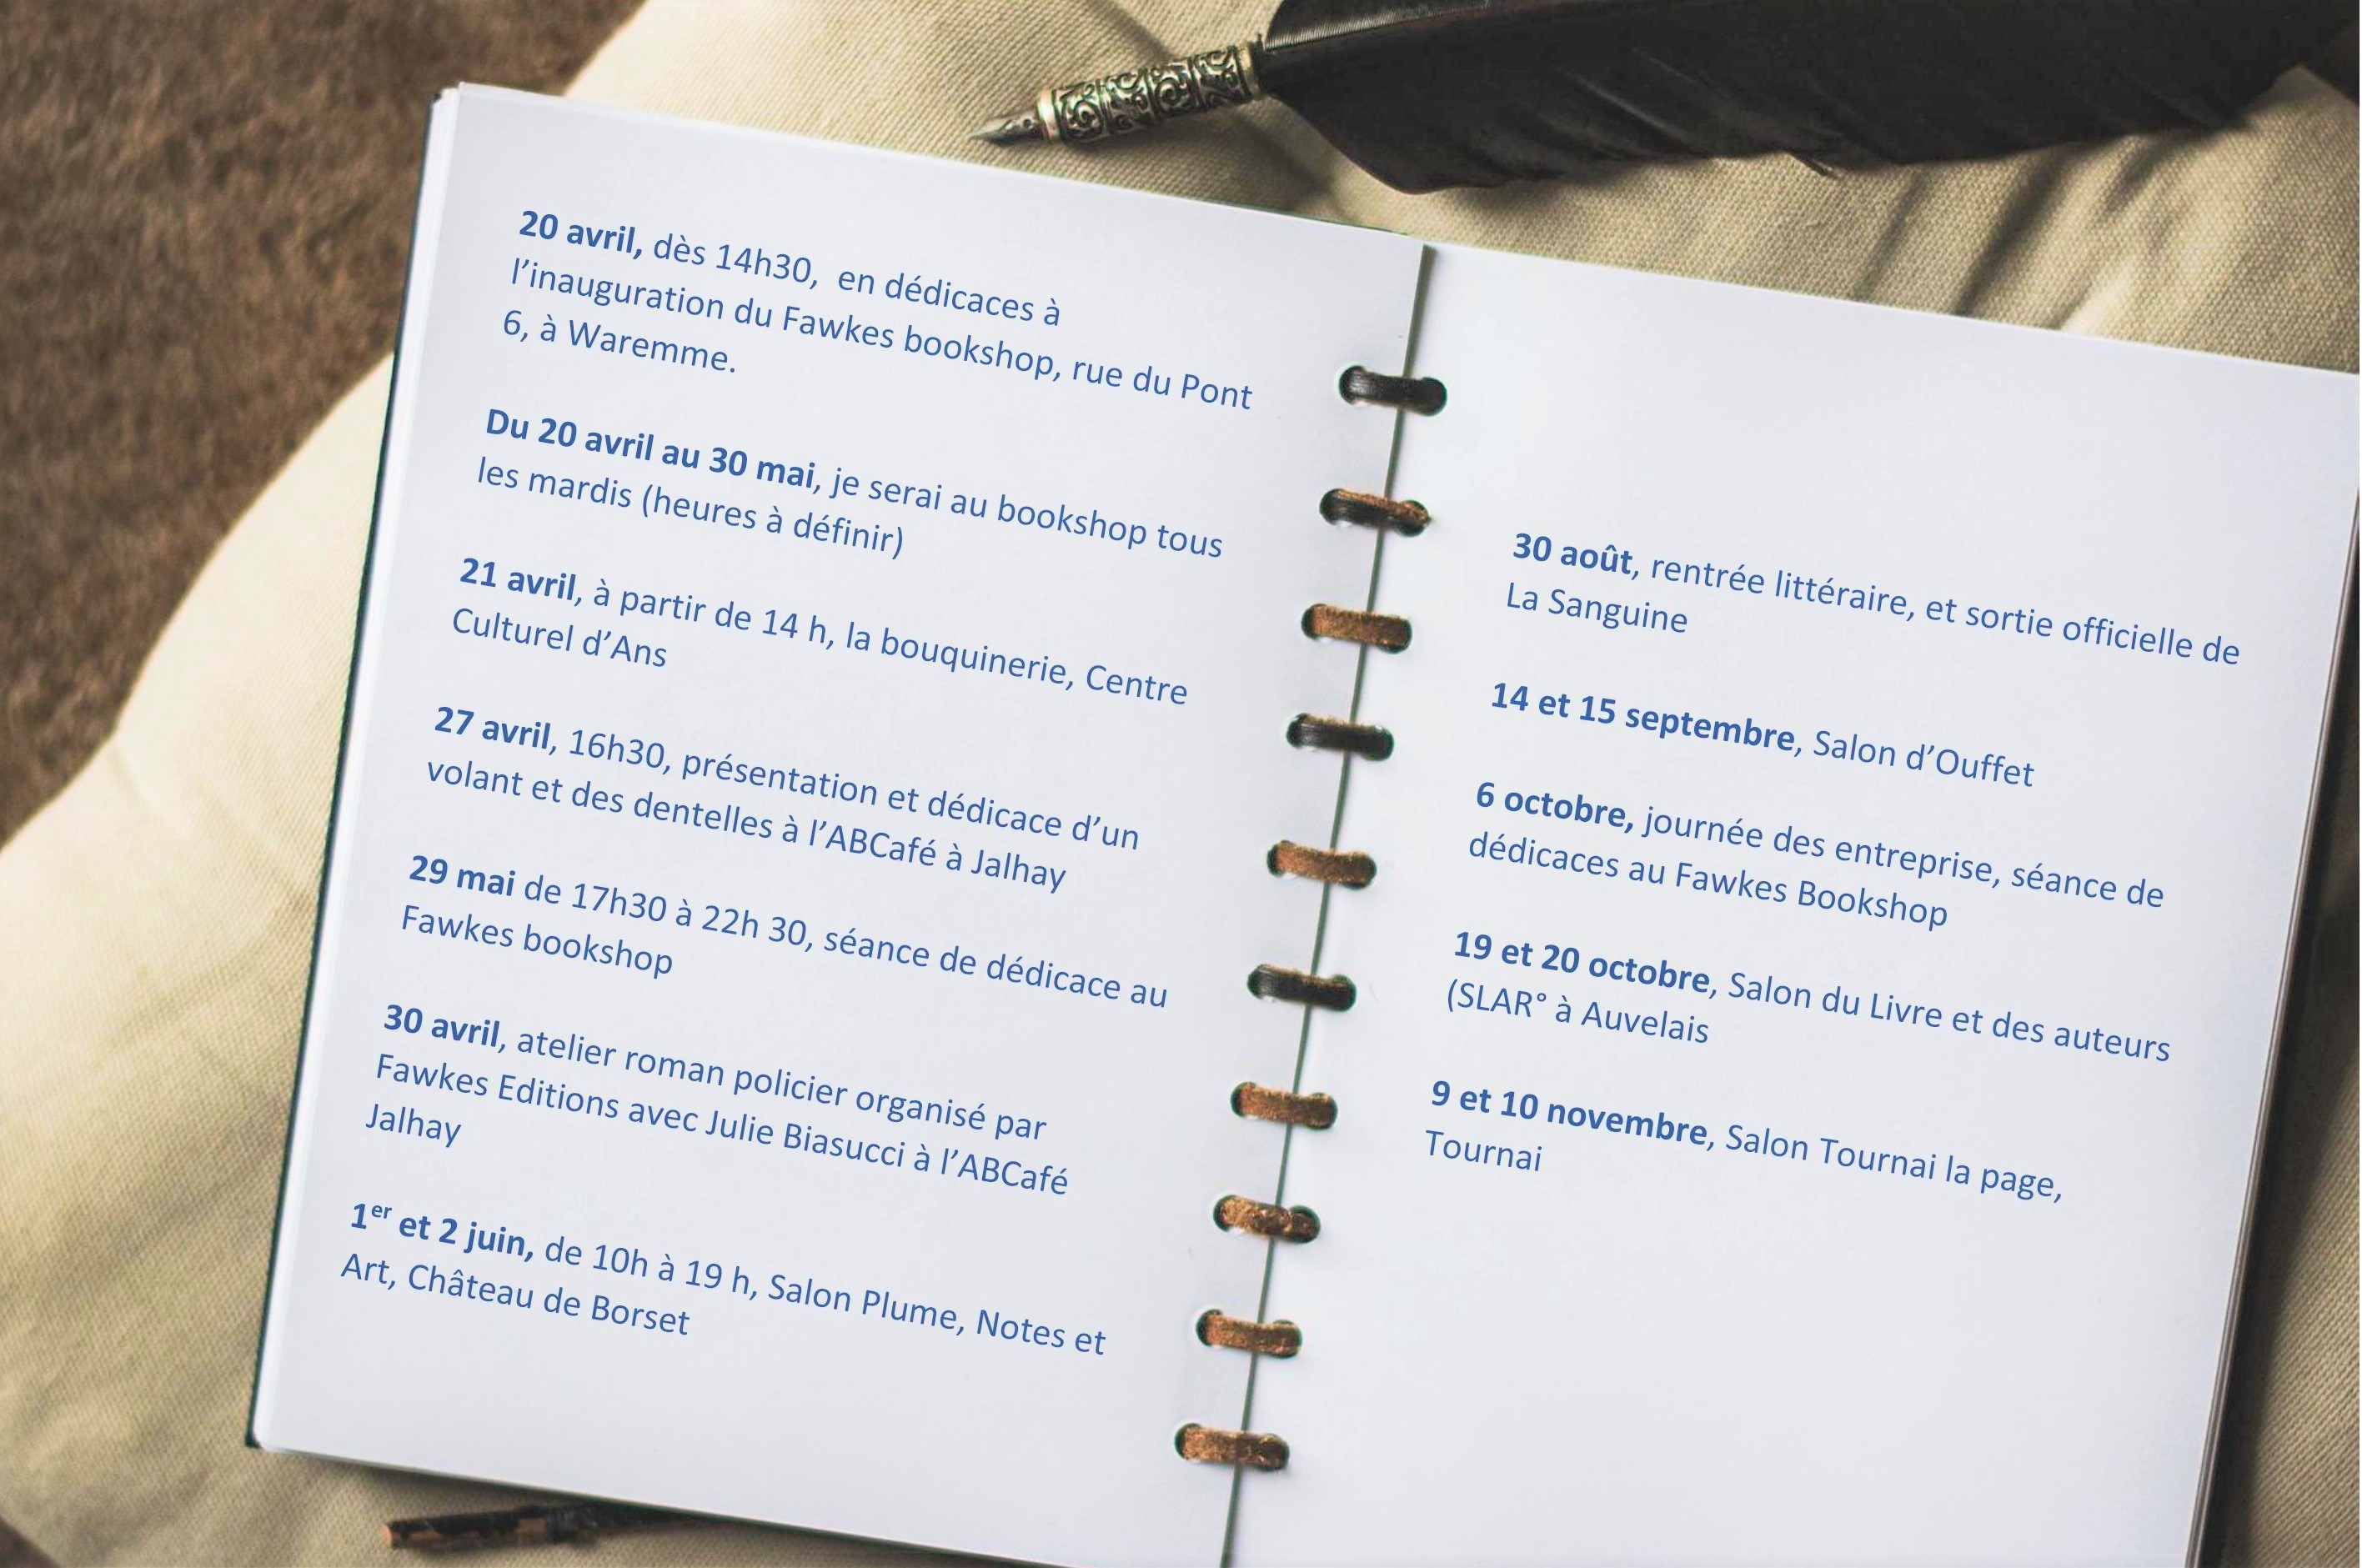 20 avril, dès 14h30,  en dédicaces à
l’inauguration du Fawkes bookshop, rue du Pont
6, à Waremme.
Du 20 avril au 30 mai, je serai au bookshop tous
les mardis (heures à définir)
21 avril, à partir de 14 h, la bouquinerie, Centre
Culturel d’Ans
27 avril, 16h30, présentation et dédicace d’un
volant et des dentelles à l’ABCafé à Jalhay
29 mai de 17h30 à 22h 30, séance de dédicace au
Fawkes bookshop
30 avril, atelier roman policier organisé par
Fawkes Editions avec Julie Biasucci à l’ABCafé
Jalhay
1er et 2 juin, de 10h à 19 h, Salon Plume, Notes et
Art, Château de Borset
30 août, rentrée littéraire, et sortie officielle de
La Sanguine
14 et 15 septembre, Salon d’Ouffet
6 octobre, journée des entreprise, séance de
dédicaces au Fawkes Bookshop
19 et 20 octobre, Salon du Livre et des auteurs
(SLAR° à Auvelais
9 et 10 novembre, Salon Tournai la page,
Tournai